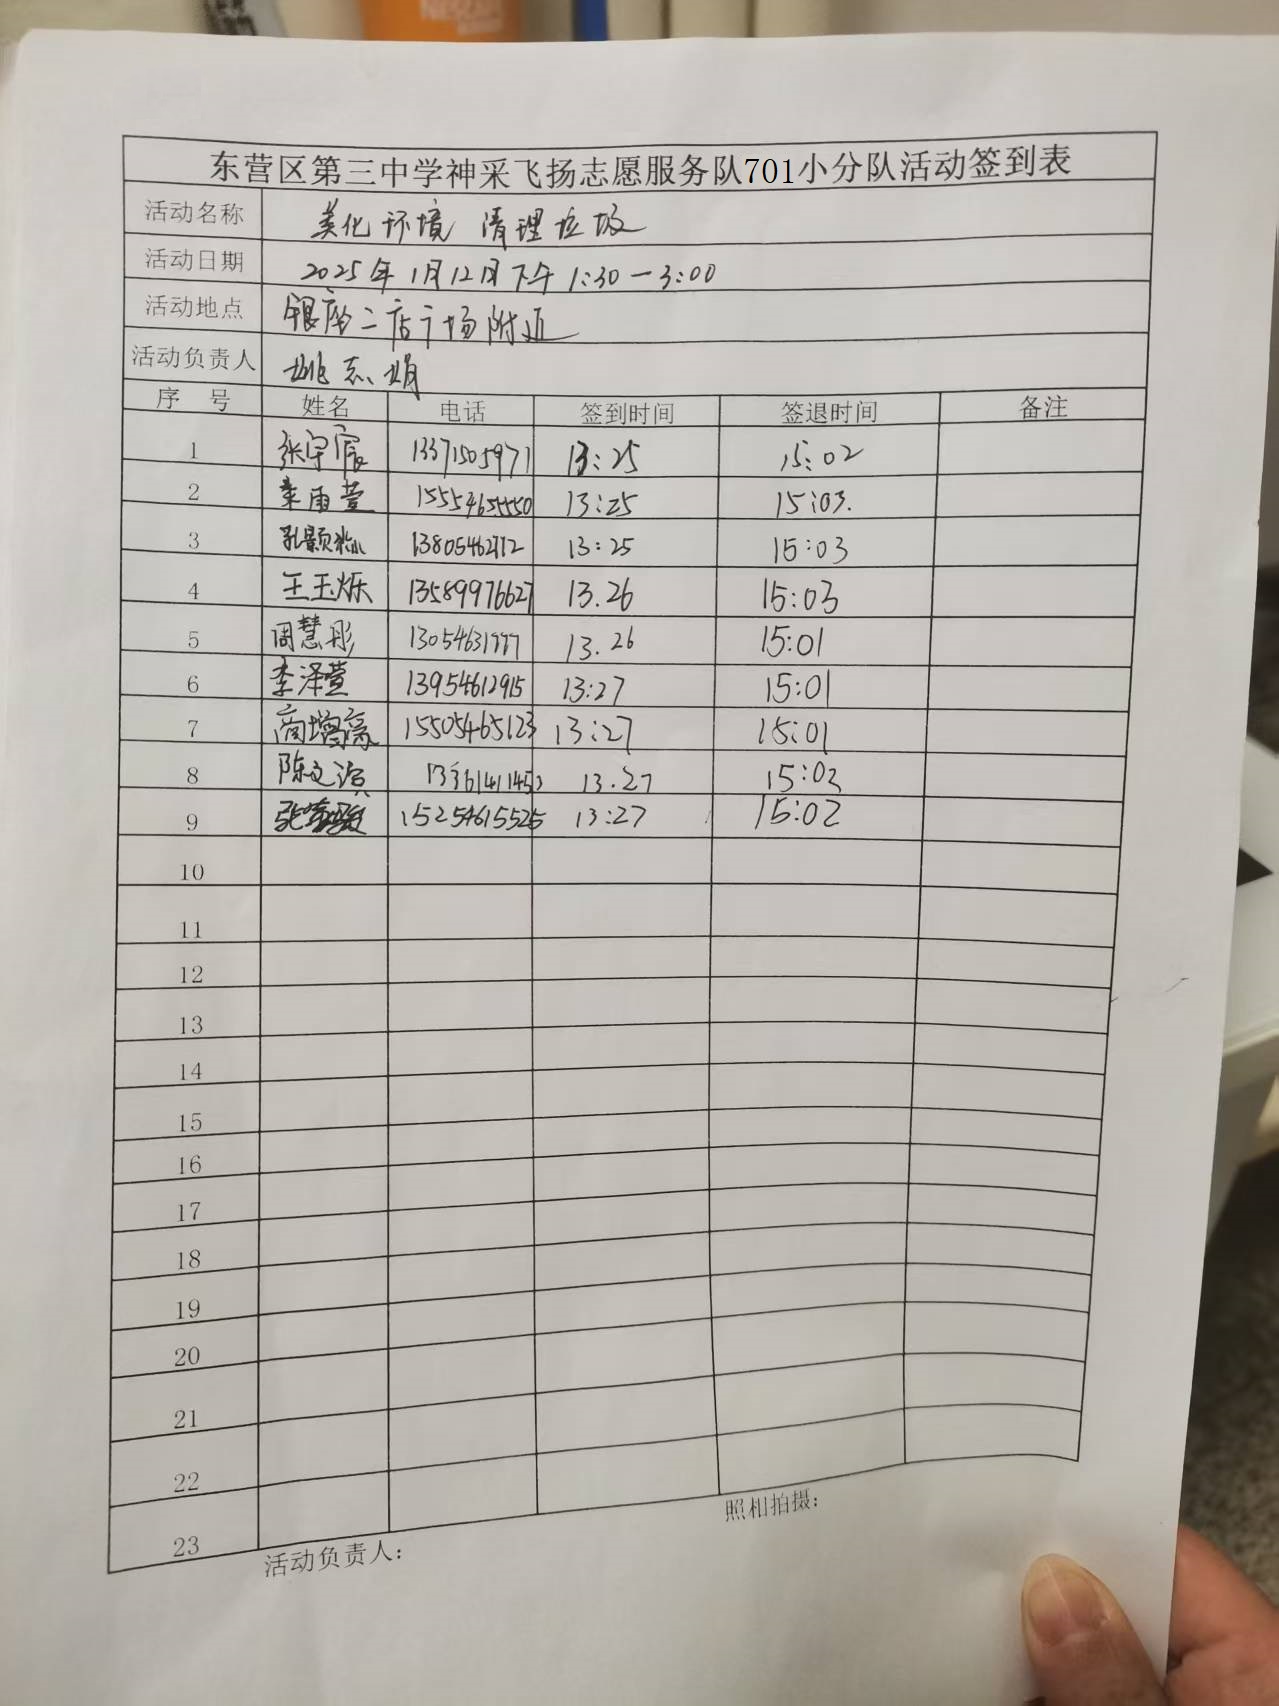 东营区第三中学神采飞扬志愿服务队701小分队活动签到表
活动名称 美化环境 清理垃圾
活动日期 2025年1月12日下午1:30—3:00
活动地点 银座二店广场附近
活动负责人 姚志娟
序 号 姓名 电话 签到时间 签退时间 备注
1 张宇宸 13371505971 13:25 15:02
2 雨萱 15554655550 13:25 15:03.
3 孔颢 13:25 15:03
4 王玉烁 13589976627 13.26 15:03
5 周慧彤 13.26 15:01
6 李泽萱 13954612915 13:27 15:01
7 商增豪 15505465123 13:27 15:01
8 陈文 13.27 15:03
9 张 15254615525 13:27 15:02
10
11
12
13
14
15
16
17
18
19
20
21
22
23
活动负责人： 照相拍摄：